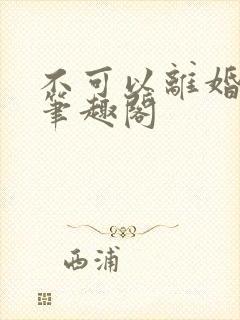 不可以離婚
筆趣閣
西浦